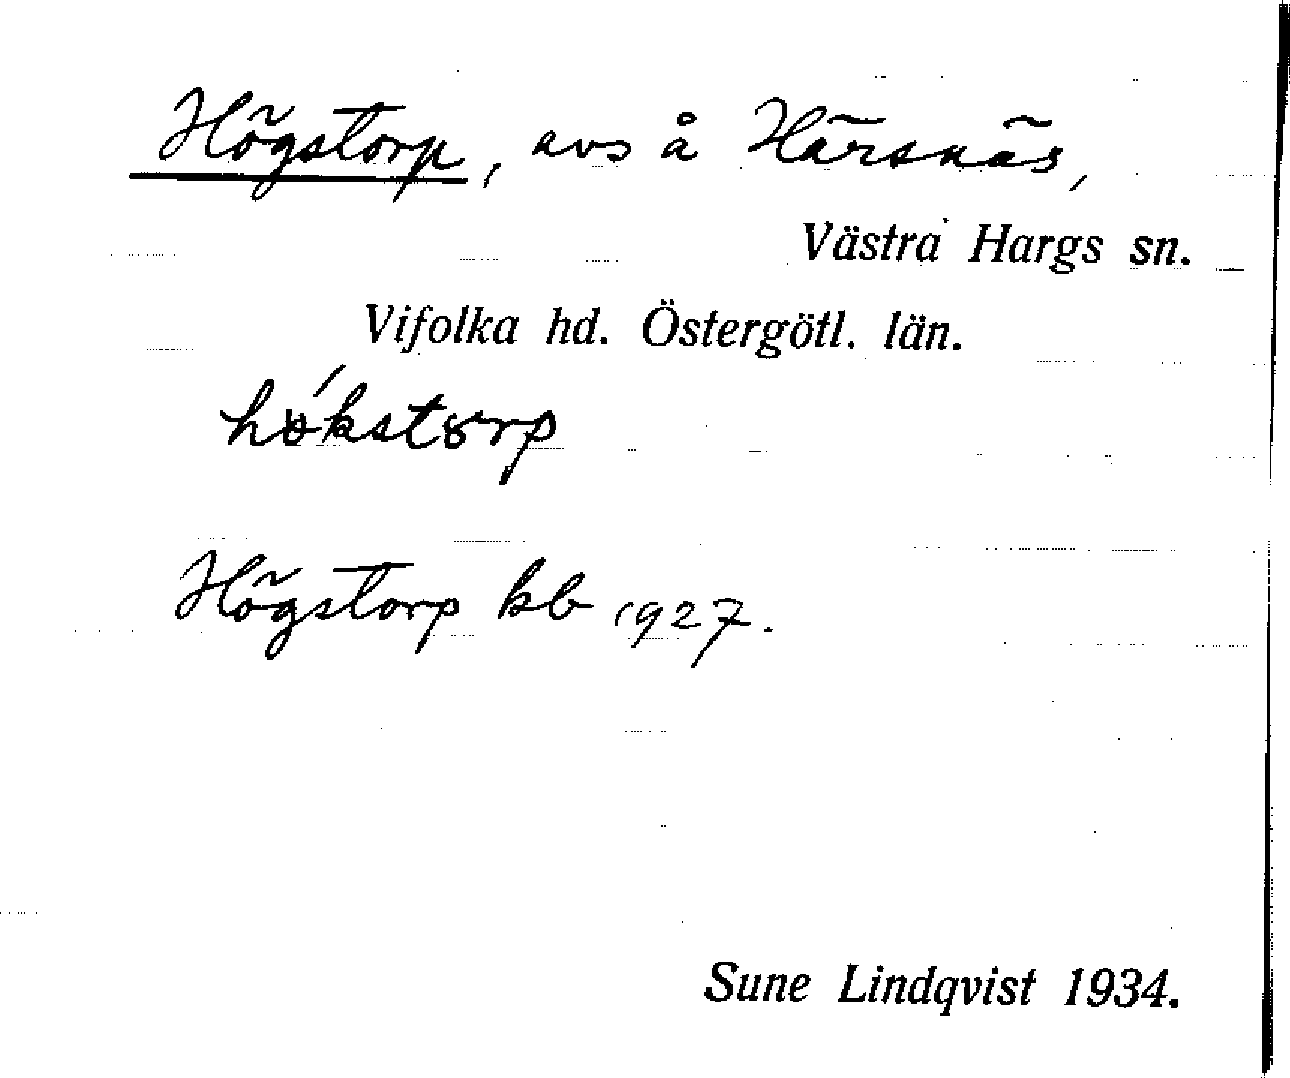 Högstorp, avs å Härsnäs,
Västra Hargs sn.
Vifolka hd. Östergötl. län.
hǿkstorp
Högstorp kb 1927.
Sune Lindqvist 1934.